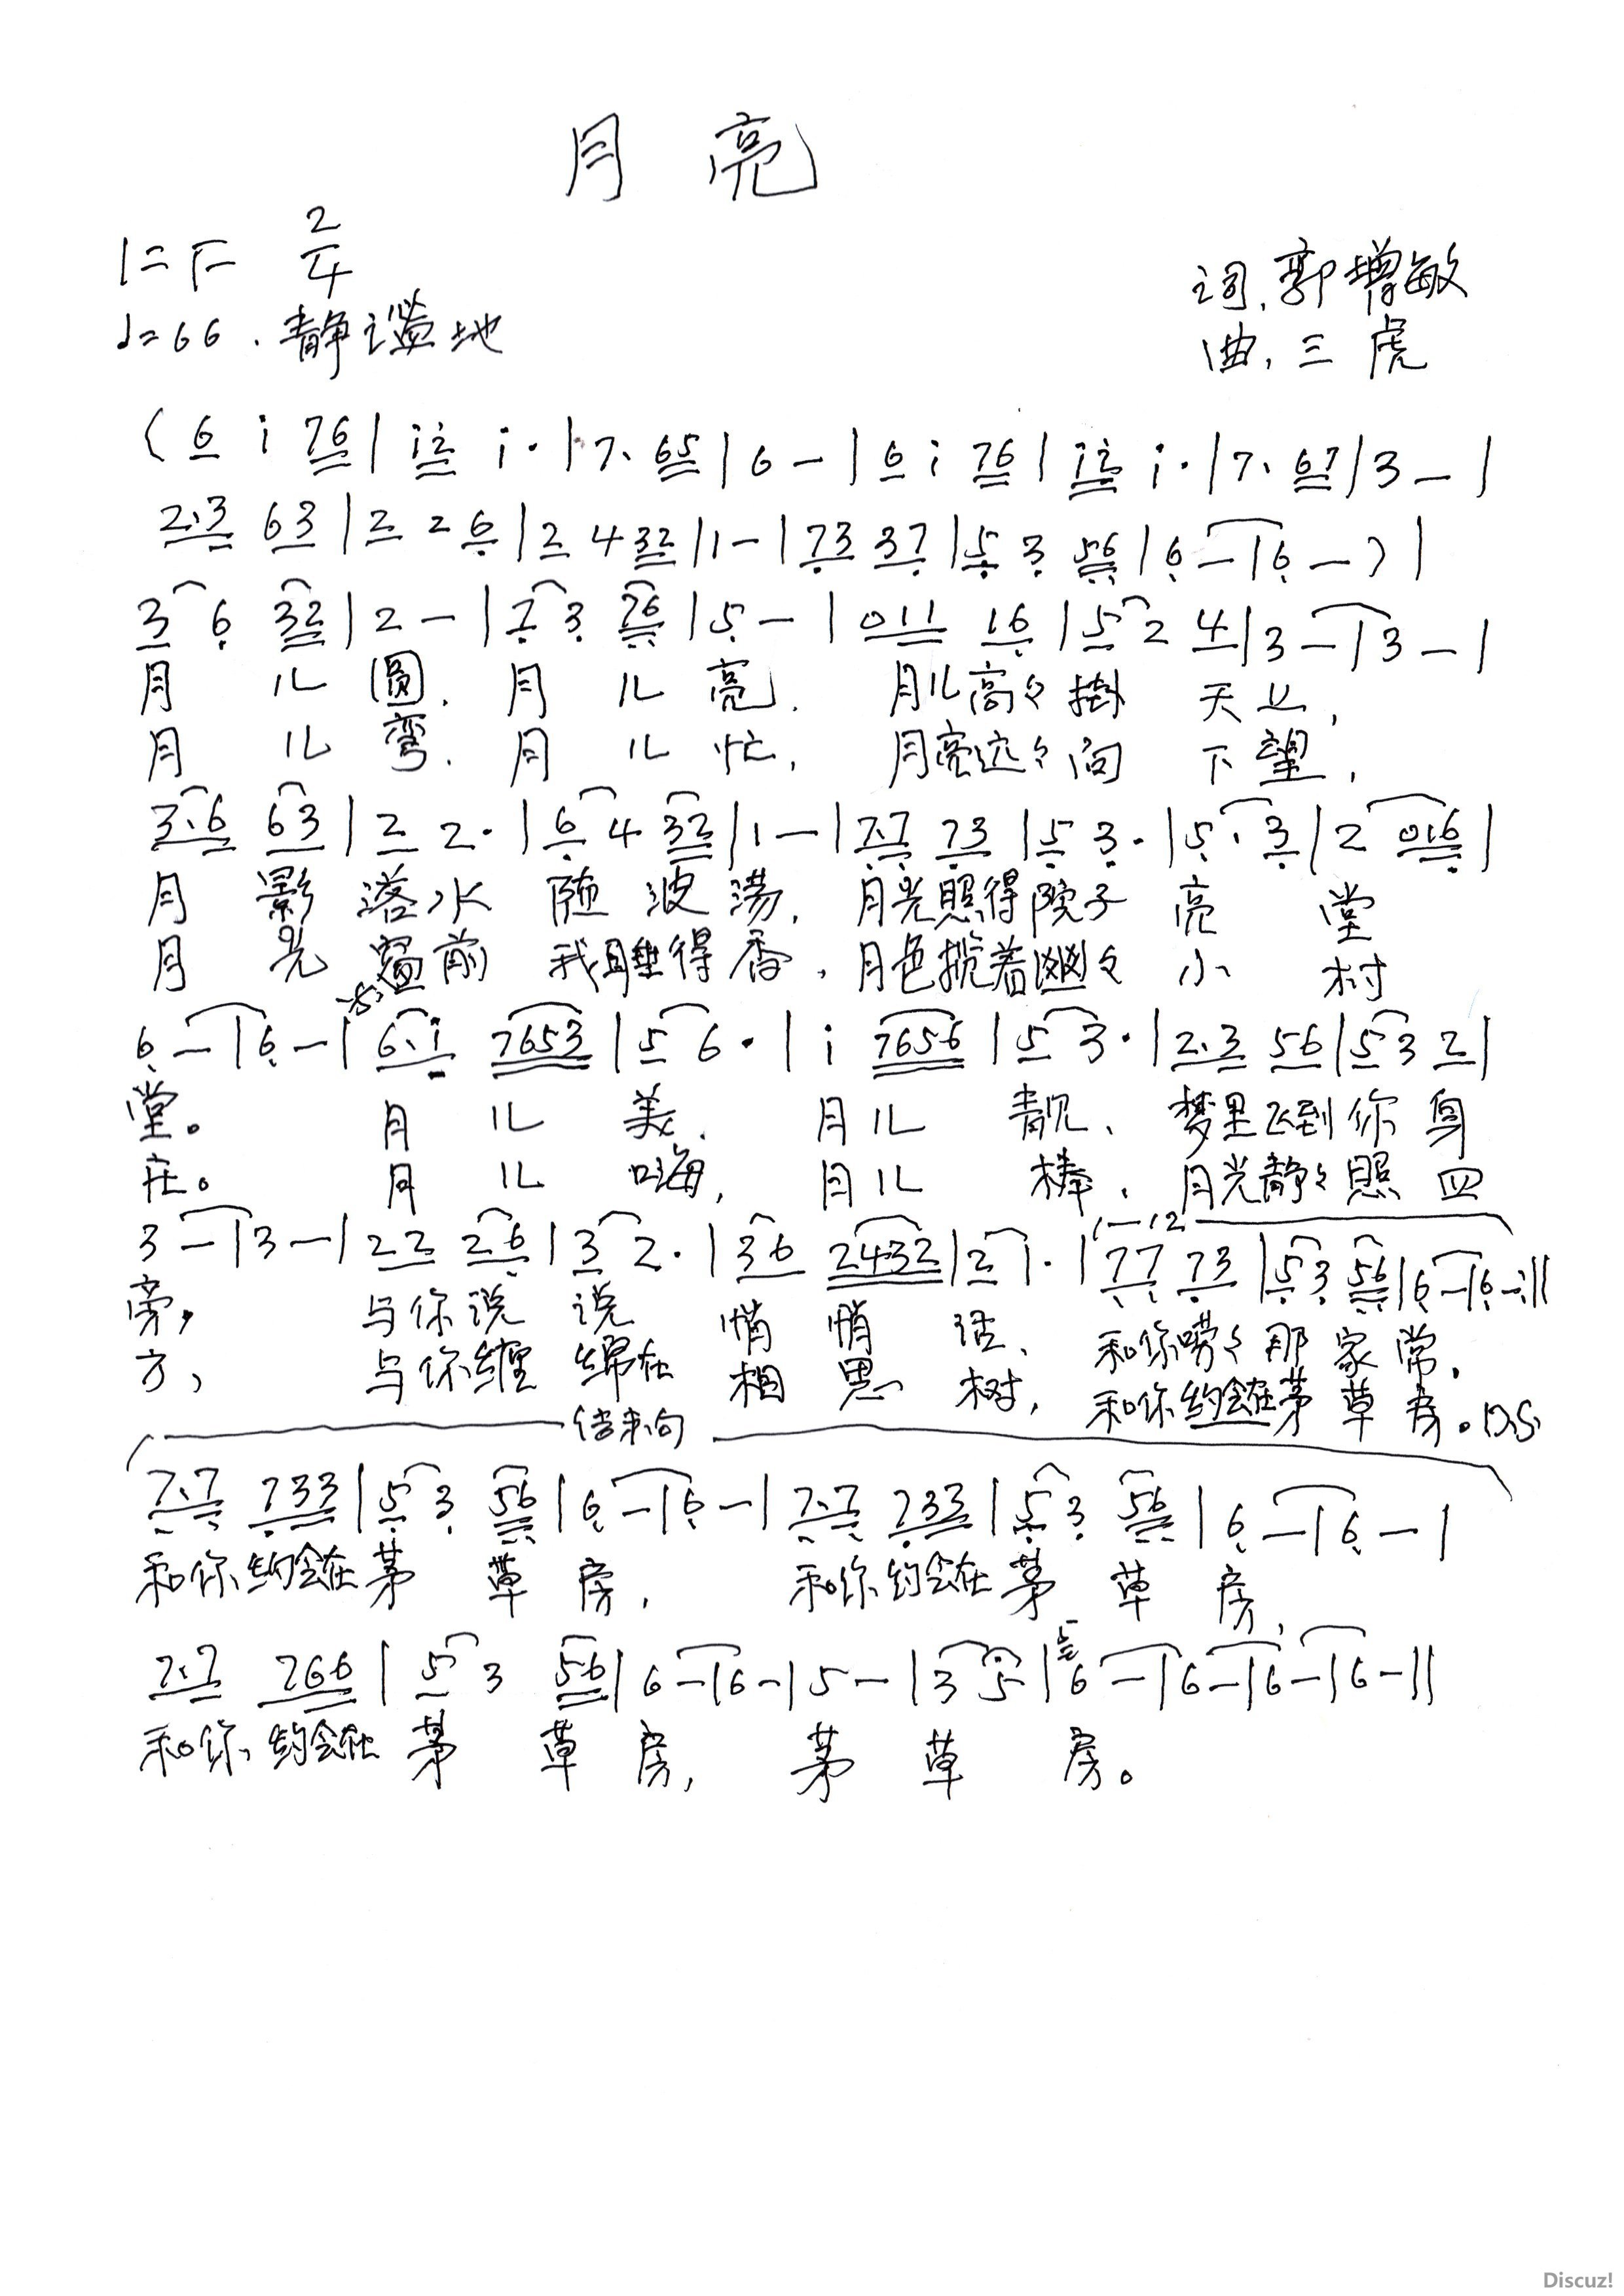 月 亮
1=F 2/4
♩=66. 静谧地
词.郭增敏
曲.三虎
(6 i 76 | i2 i· | 7· 65 | 6 - | 6 i 76 | i2 i· | 7· 67 | 3 - |
2·3 63 | 2 2 6 | 2 4 32 | 1 - | 73 37 | 5 3 56 | 6 - | 6 - ) |
3 6 32 | 2 - | 7 3 76 | 5 - | 011 16 | 5 2 4 | 3 - | 3 - |
月 儿 圆. 月 儿 亮. 月儿高々掛 天上,
月 儿 弯. 月 儿 忙, 月亮远々向 下望,
3·6 63 | 2 2· | 6 4 32 | 1 - | 7·7 73 | 5 3· | 5· 3 | 2 016 |
月 影 落水 随 波 荡, 月光照得院子 亮 堂
月 光 窗前 我睡得香, 月色揽着幽幽々 小 村
6 - | 6 - | 6·i 7653 | 5 6· | i 7656 | 5 3· | 2·3 56 | 5 3 2 |
堂。 月 儿 美. 月儿 靓、 梦里飞到你身
庄。 月 儿 嗨, 月儿 棒、 月光静々照四
3 - | 3 - | 22 26 | 3 2· | 36 2432 | 2 1· | 77 73 | 5 3 56 | 6 - | 6 - :||
旁, 与你说 说 悄 悄 话、 和你唠々那家常.
方, 与你缠 绵在 相 思 树, 和你约会在茅草房。D.S.
结束句
7·7 733 | 5 3 56 | 6 - | 6 - | 7·7 733 | 5 3 56 | 6 - | 6 - |
和你约会在茅 草 房, 和你约会在茅 草 房,
7·7 766 | 5 3 56 | 6 - | 6 - | 5 - | 3 5 | 6 - | 6 - | 6 - | 6 - ||
和你约会在 茅 草 房, 茅 草 房。
Discuz!